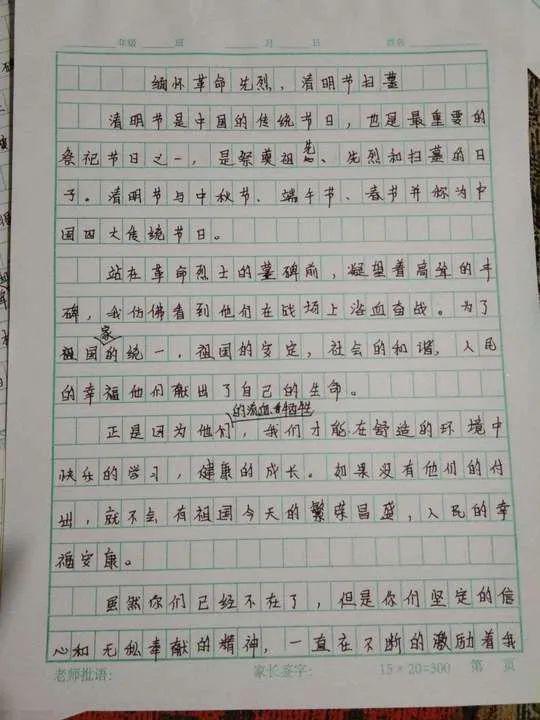 年级 班 月 日 姓名
缅怀革命先烈，清明节扫墓
清明节是中国的传统节日，也是最重要的
祭祀节日之一，是祭奠祖先、先烈和扫墓的日
子。清明节与中秋节、端午节、春节并称为中
国四大传统节日。
站在革命烈士的墓碑前，凝望着高耸的丰
碑，我仿佛看到他们在战场上浴血奋战。为了
家
祖国的统一，祖国的安定，社会的和谐，人民
的幸福他们献出了自己的生命。
的流血有牺牲
正是因为他们，我们才能在舒适的环境中
快乐的学习，健康的成长。如果没有他们的付
出，就不会有祖国今天的繁荣昌盛，人民的幸
福安康。
虽然你们已经不在了，但是你们坚定的信
心和无私奉献的精神，一直在不断的激励着我
老师批语： 家长签字： 15×20=300 第 页